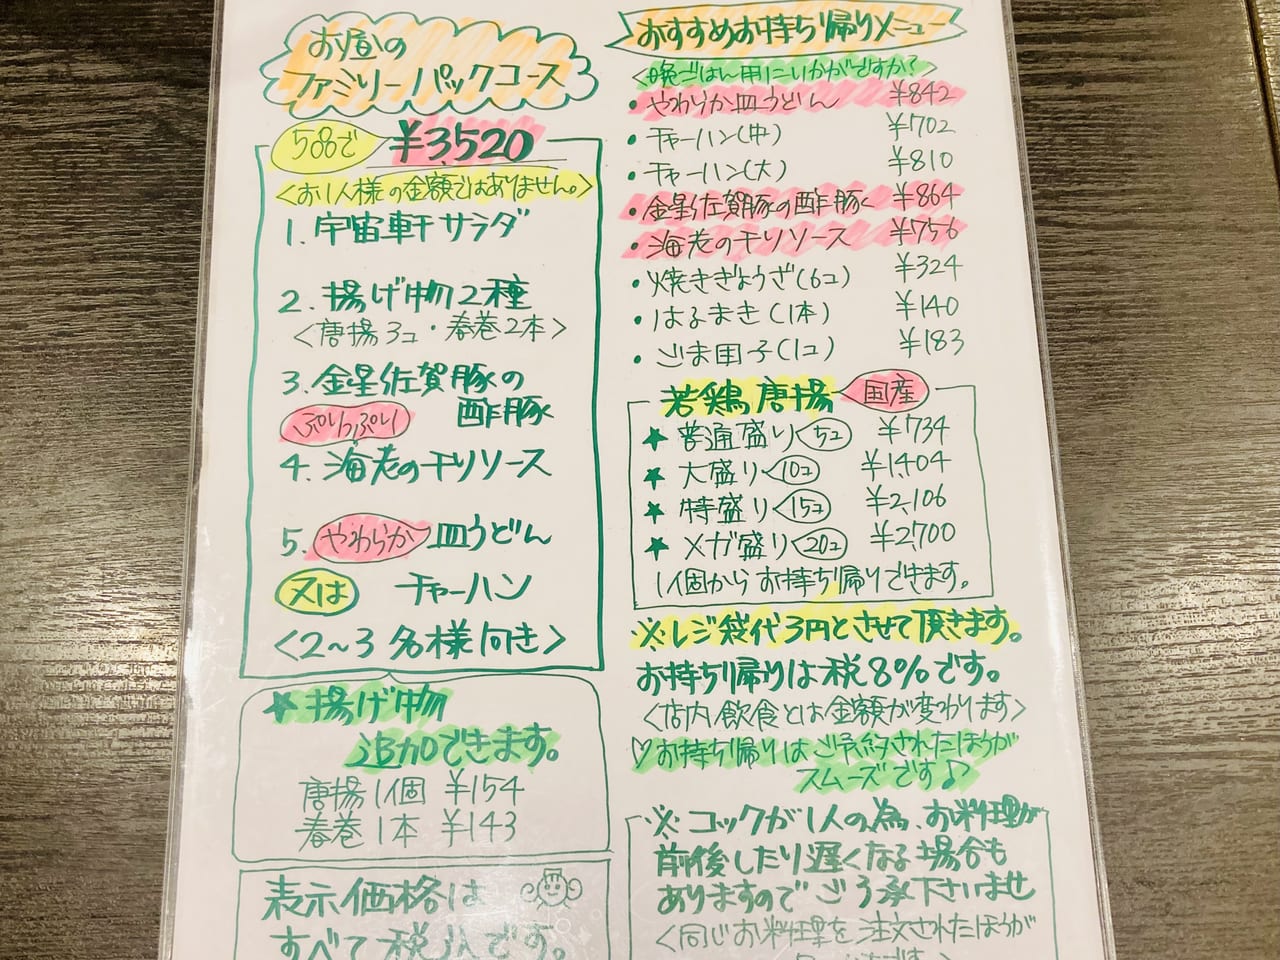 お昼の
ファミリーパックコース
5品で ¥3,520
<お1人様の金額ではありません。>
1. 宇宙軒サラダ
2. 揚げ物2種
<唐揚3コ・春巻2本>
3. 金星佐賀豚の
酢豚
ぷりっぷり
4. 海老のチリソース
5. やわらか 皿うどん
又は チャーハン
<2～3名様向き>
★揚げ物
追加できます。
唐揚1個 ¥154
春巻1本 ¥143
表示価格は
すべて税込です。
おすすめお持ち帰りメニュー
<晩ごはん用にいかがですか?>
・やわらか皿うどん ¥842
・チャーハン(中) ¥702
・チャーハン(大) ¥810
・金星佐賀豚の酢豚 ¥864
・海老のチリソース ¥756
・焼きぎょうざ(6コ) ¥324
・はるまき(1本) ¥140
・ごま団子(1コ) ¥183
若鶏唐揚 国産
★ 普通盛り 5コ ¥734
★ 大盛り 10コ ¥1,404
★ 特盛り 15コ ¥2,106
★ メガ盛り 20コ ¥2,700
1個からお持ち帰りできます。
※レジ袋代3円とさせて頂きます。
お持ち帰りは税8%です。
<店内飲食とは金額が変わります>
♡お持ち帰りはご予約されたほうが
スムーズです♪
※コックが1人の為、お料理が
前後したり遅くなる場合も
ありますのでご了承下さいませ
<同じお料理を注文されたほうが